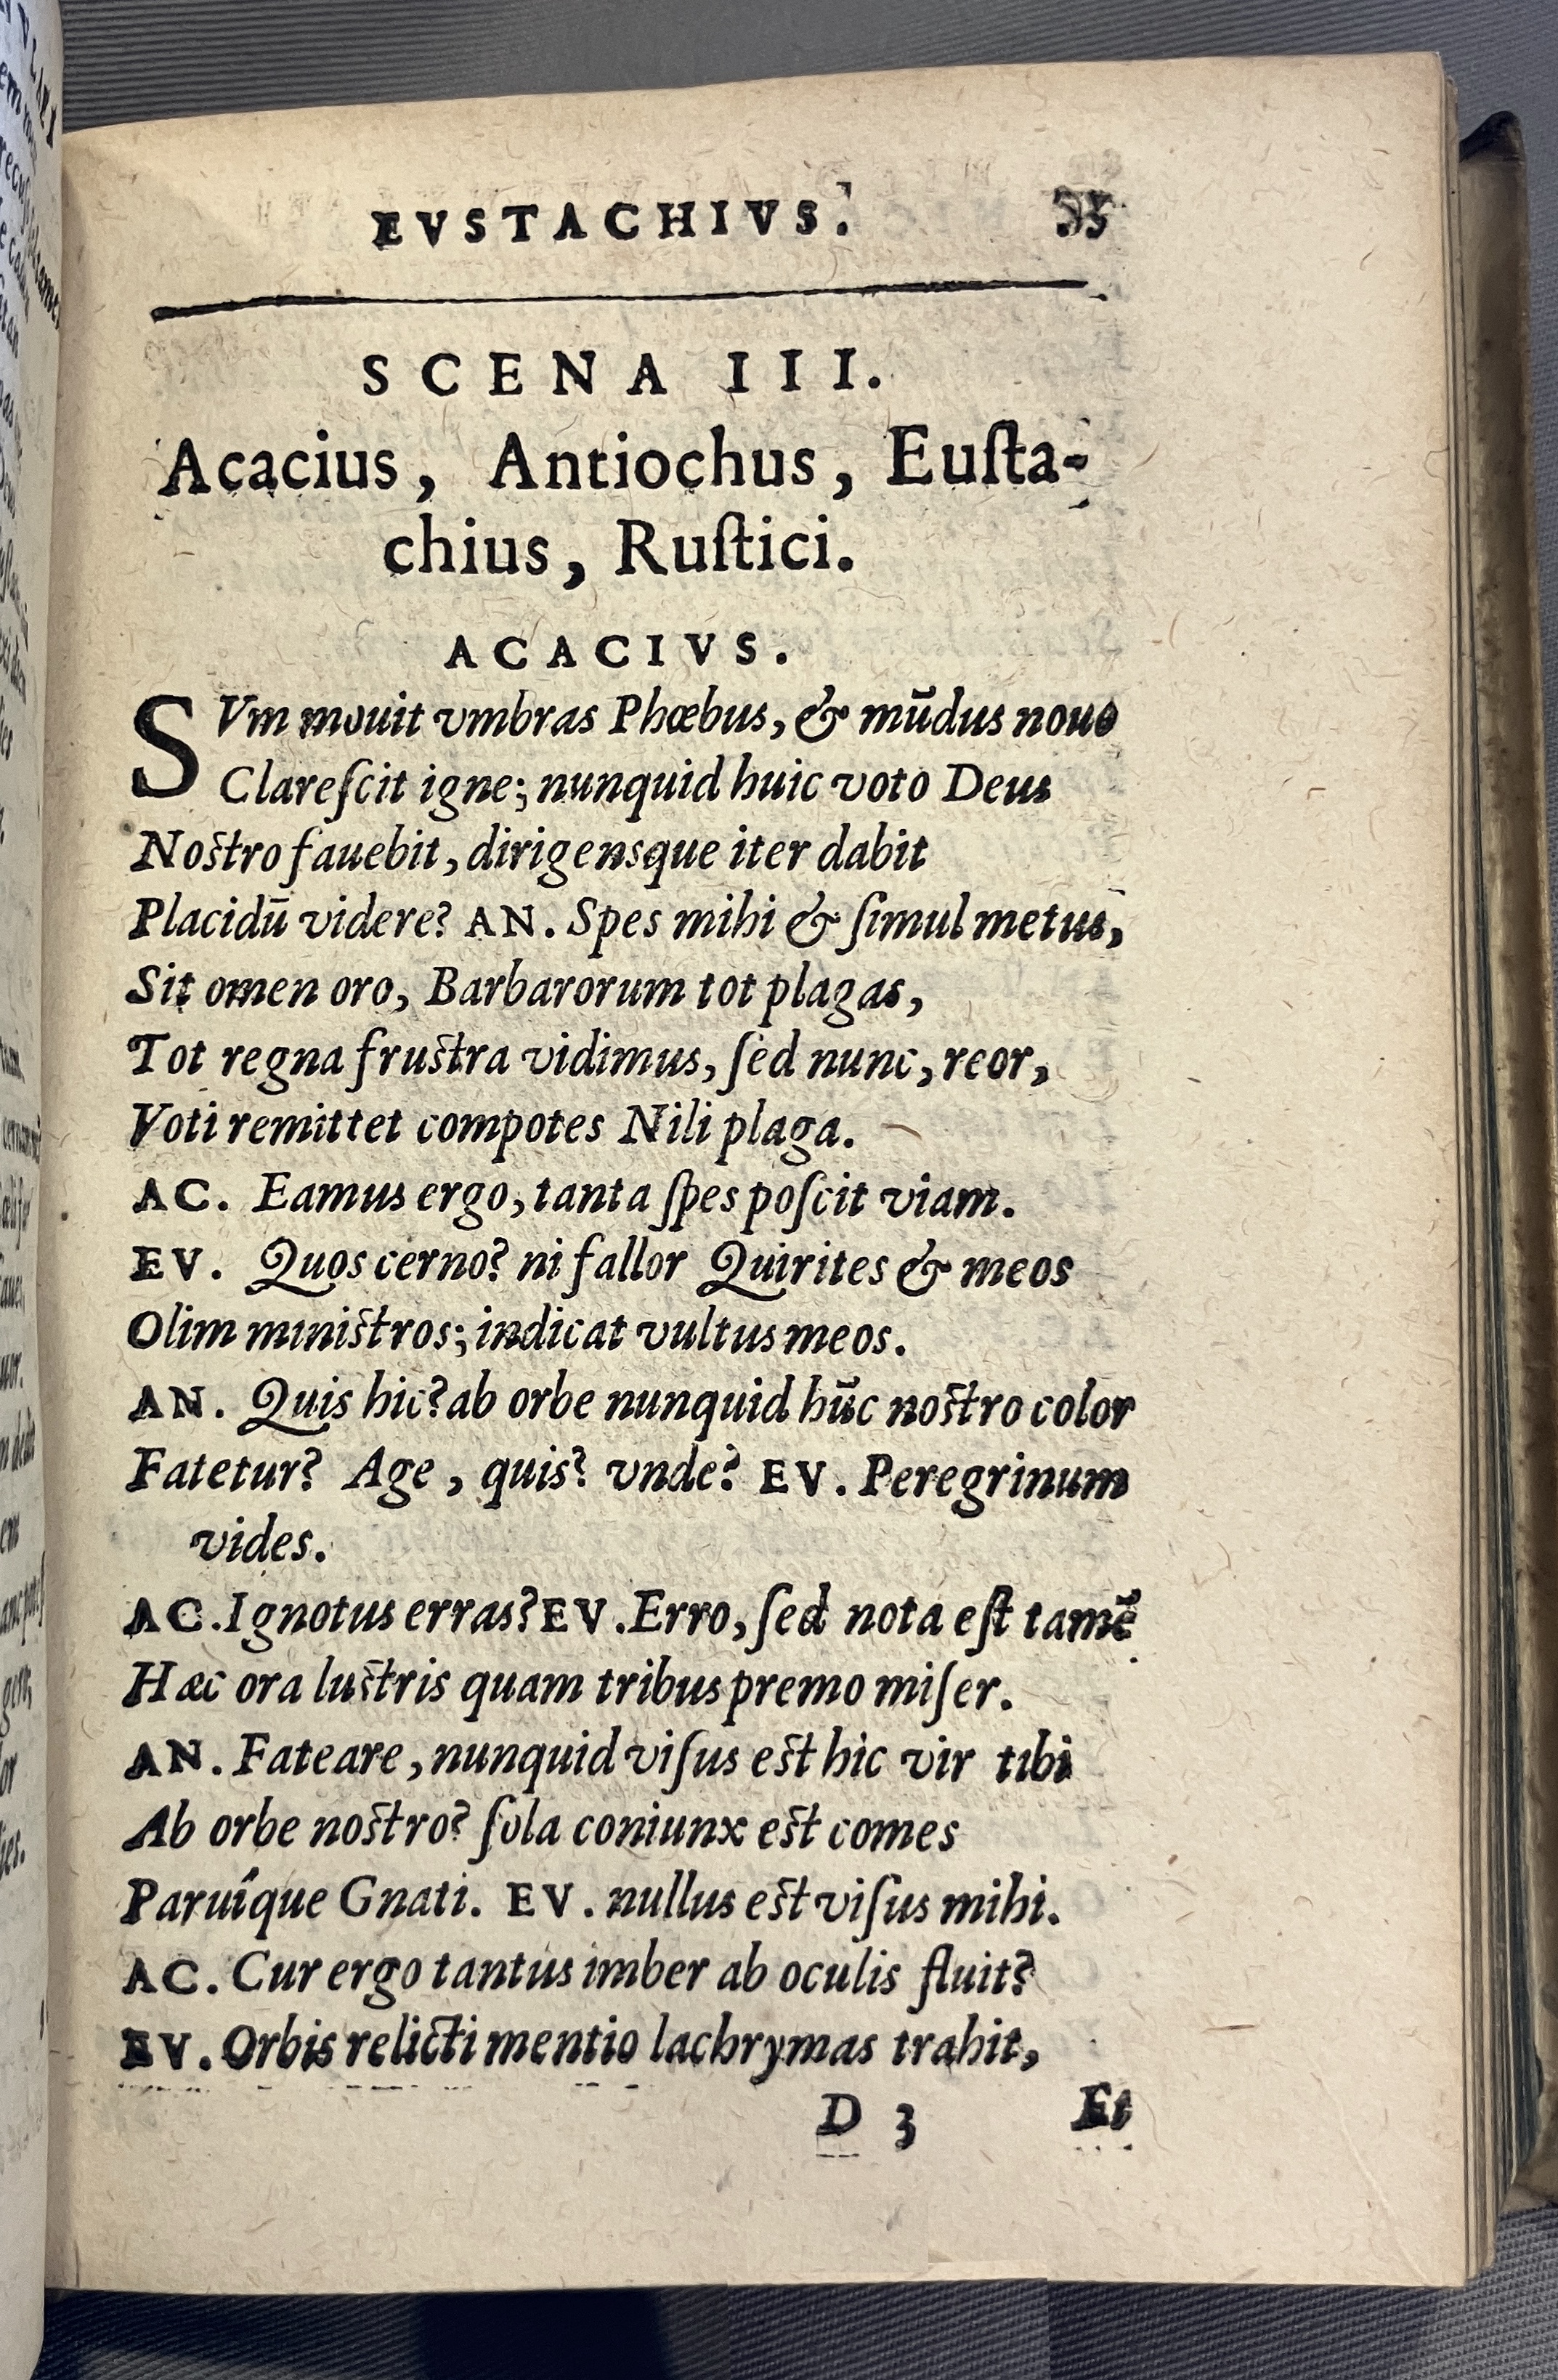 EVSTACHIVS.
SCENA III.
Acacius, Antiochus, Euſta-
chius, Ruſtici.
ACACIVS.
SVm mouit vmbras Phœbus, & mūdus nouo
Clareſcit igne; nunquid huic voto Deus
Noſtro fauebit, dirigensque iter dabit
Placidū videre? AN. Spes mihi & ſimul metus,
Sit omen oro, Barbarorum tot plagas,
Tot regna fruſtra vidimus, ſed nunc, reor,
Voti remittet compotes Nili plaga.
AC. Eamus ergo, tanta ſpes poſcit viam.
EV. Quos cerno? ni fallor Quirites & meos
Olim miniſtros; indicat vultus meos.
AN. Quis hic? ab orbe nunquid hūc noſtro color
Fatetur? Age, quis? vnde? EV. Peregrinum
vides.
AC. Ignotus erras? EV. Erro, ſed nota eſt tamē
Hæc ora luſtris quam tribus premo miſer.
AN. Fateare, nunquid viſus eſt hic vir tibi
Ab orbe noſtro? ſola coniunx eſt comes
Paruîque Gnati. EV. nullus eſt viſus mihi.
AC. Cur ergo tantus imber ab oculis fluit?
EV. Orbis relicti mentio lachrymas trahit,
D 3 Et